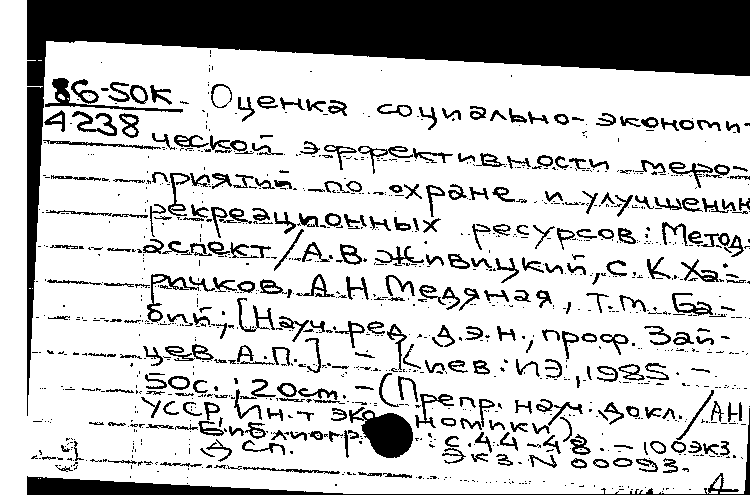 86-50К Оценка социально-экономи-
4238 ческой эффективности меро-
приятий по охране и улучшению
рекреационных ресурсов: Метод.
аспект / А.В. Живицкий, С.К. Ха-
ричков, А.Н. Медяная, Т.М. Ба-
бий; [Науч. ред. д.э.н., проф. Зай-
цев А.П.]. - Киев: ИЭ, 1985. -
50с.; 20см. - (Препр. науч. докл. / АН
УССР, Ин-т экономики)
Библиогр.: с. 44-48. - 100экз.
ДСП. Экз. N 00093.